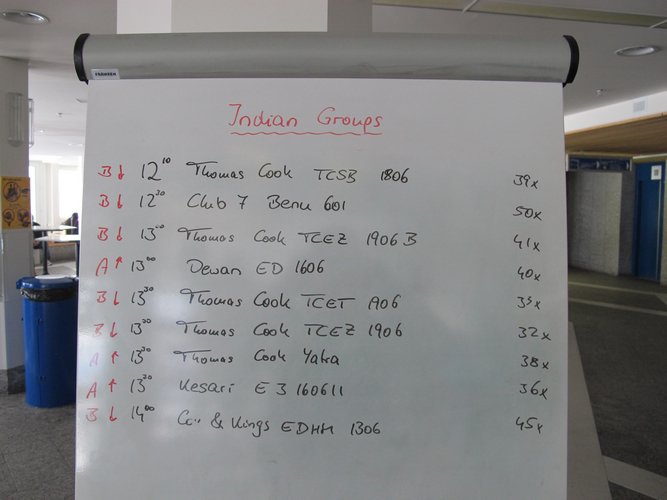 Indian Groups
B ↓ 12¹⁰ Thomas Cook TCSB 1806 39x
B ↓ 12³⁰ Club 7 Benu 601 50x
B ↓ 13⁰⁰ Thomas Cook TCEZ 1906 B 41x
A ↑ 13⁰⁰ Dewan ED 1606 40x
B ↓ 13³⁰ Thomas Cook TCET 1906 35x
B ↓ 13³⁰ Thomas Cook TCEZ 1906 32x
A ↑ 13³⁰ Thomas Cook Yatra 38x
A ↑ 13³⁰ Kesari E3 160611 36x
B ↓ 14⁰⁰ & Kings EDHH 1306 45x